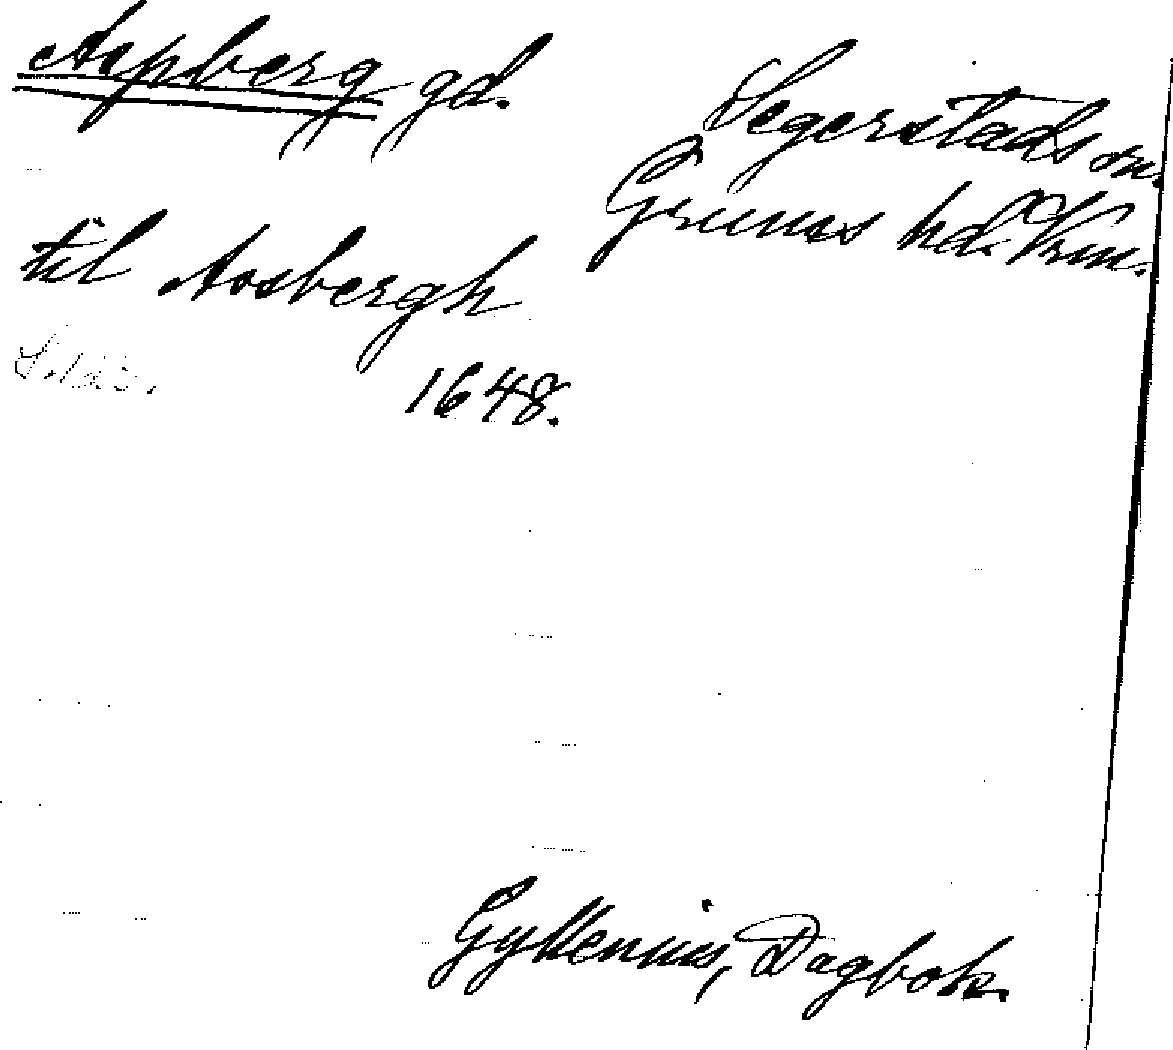 Aspberg gd.
Segerstads sn.
Grums hd. Vrm.
til Assbergh
S. 183.
1648.
Gyllenius, Dagbok.